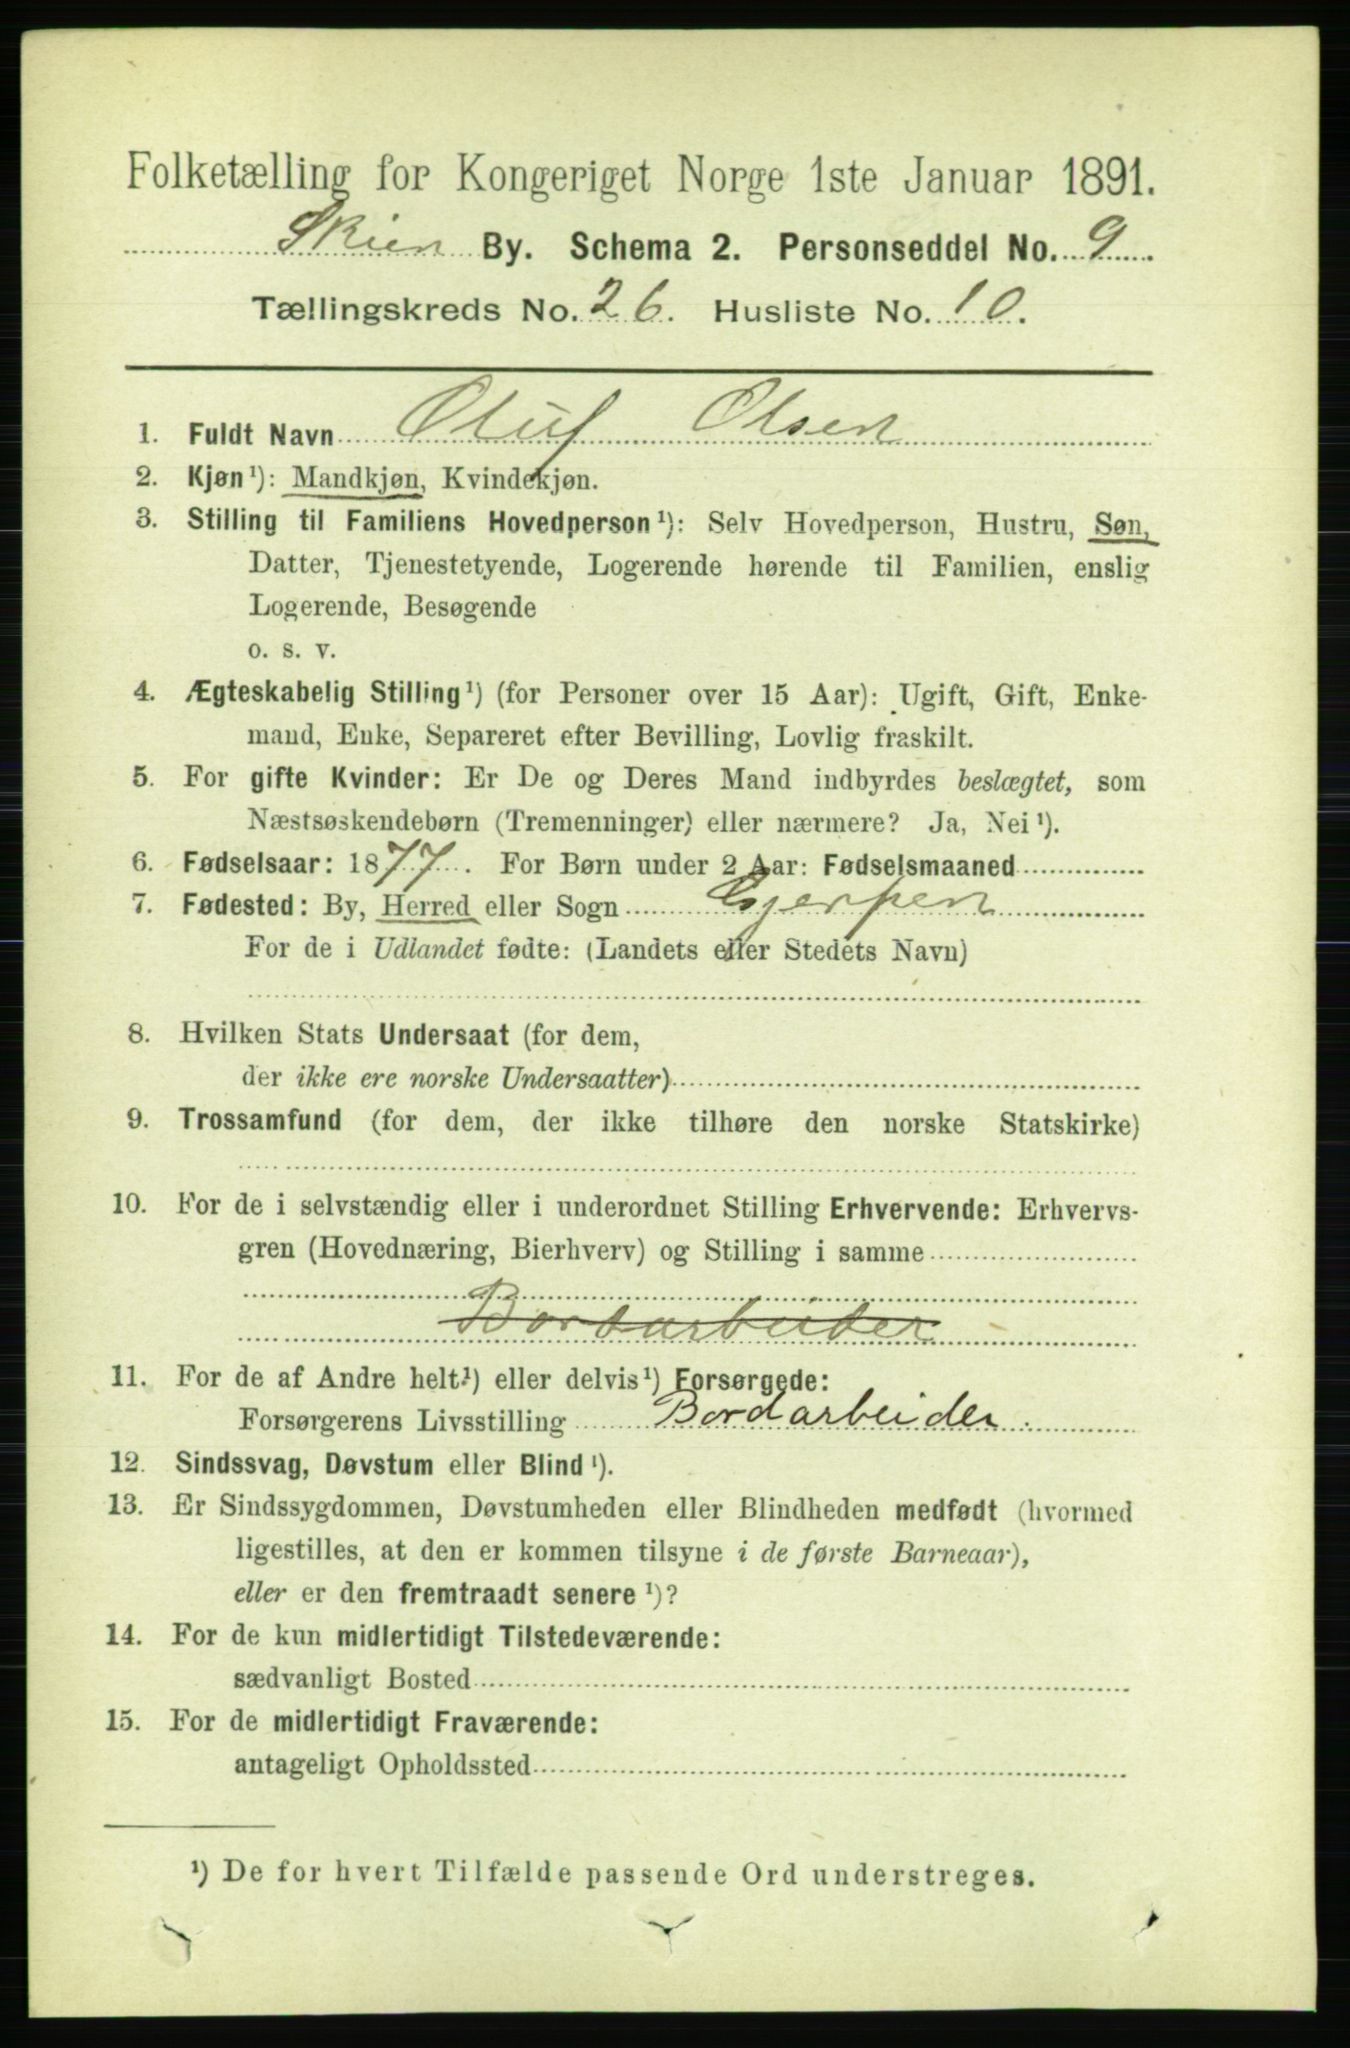 Folketælling for Kongeriget Norge 1ste Januar 1891.
Skien By. Schema 2. Personseddel No. 9
Tællingskreds No. 26. Husliste No. 10.
1. Fuldt Navn Oluf Olsen
2. Kjøn ¹): Mandkjøn, Kvindekjøn.
3. Stilling til Familiens Hovedperson ¹): Selv Hovedperson, Hustru, Søn,
Datter, Tjenestetyende, Logerende hørende til Familien, enslig
Logerende, Besøgende
o. s. v.
4. Ægteskabelig Stilling ¹) (for Personer over 15 Aar): Ugift, Gift, Enke-
mand, Enke, Separeret efter Bevilling, Lovlig fraskilt.
5. For gifte Kvinder: Er De og Deres Mand indbyrdes beslægtet, som
Næstsøskendebørn (Tremenninger) eller nærmere? Ja, Nei ¹).
6. Fødselsaar: 1877. For Børn under 2 Aar: Fødselsmaaned
7. Fødested: By, Herred eller Sogn Gjerpen
For de i Udlandet fødte: (Landets eller Stedets Navn)
8. Hvilken Stats Undersaat (for dem,
der ikke ere norske Undersaatter)
9. Trossamfund (for dem, der ikke tilhøre den norske Statskirke)
10. For de i selvstændig eller i underordnet Stilling Erhvervende: Erhvervs-
gren (Hovednæring, Bierhverv) og Stilling i samme
Bordarbeider
11. For de af Andre helt ¹) eller delvis ¹) Forsørgede:
Forsørgerens Livsstilling Bordarbeider.
12. Sindssvag, Døvstum eller Blind ¹).
13. Er Sindssygdommen, Døvstumheden eller Blindheden medfødt (hvormed
ligestilles, at den er kommen tilsyne i de første Barneaar),
eller er den fremtraadt senere ¹)?
14. For de kun midlertidigt Tilstedeværende:
sædvanligt Bosted
15. For de midlertidigt Fraværende:
antageligt Opholdssted
¹) De for hvert Tilfælde passende Ord understreges.